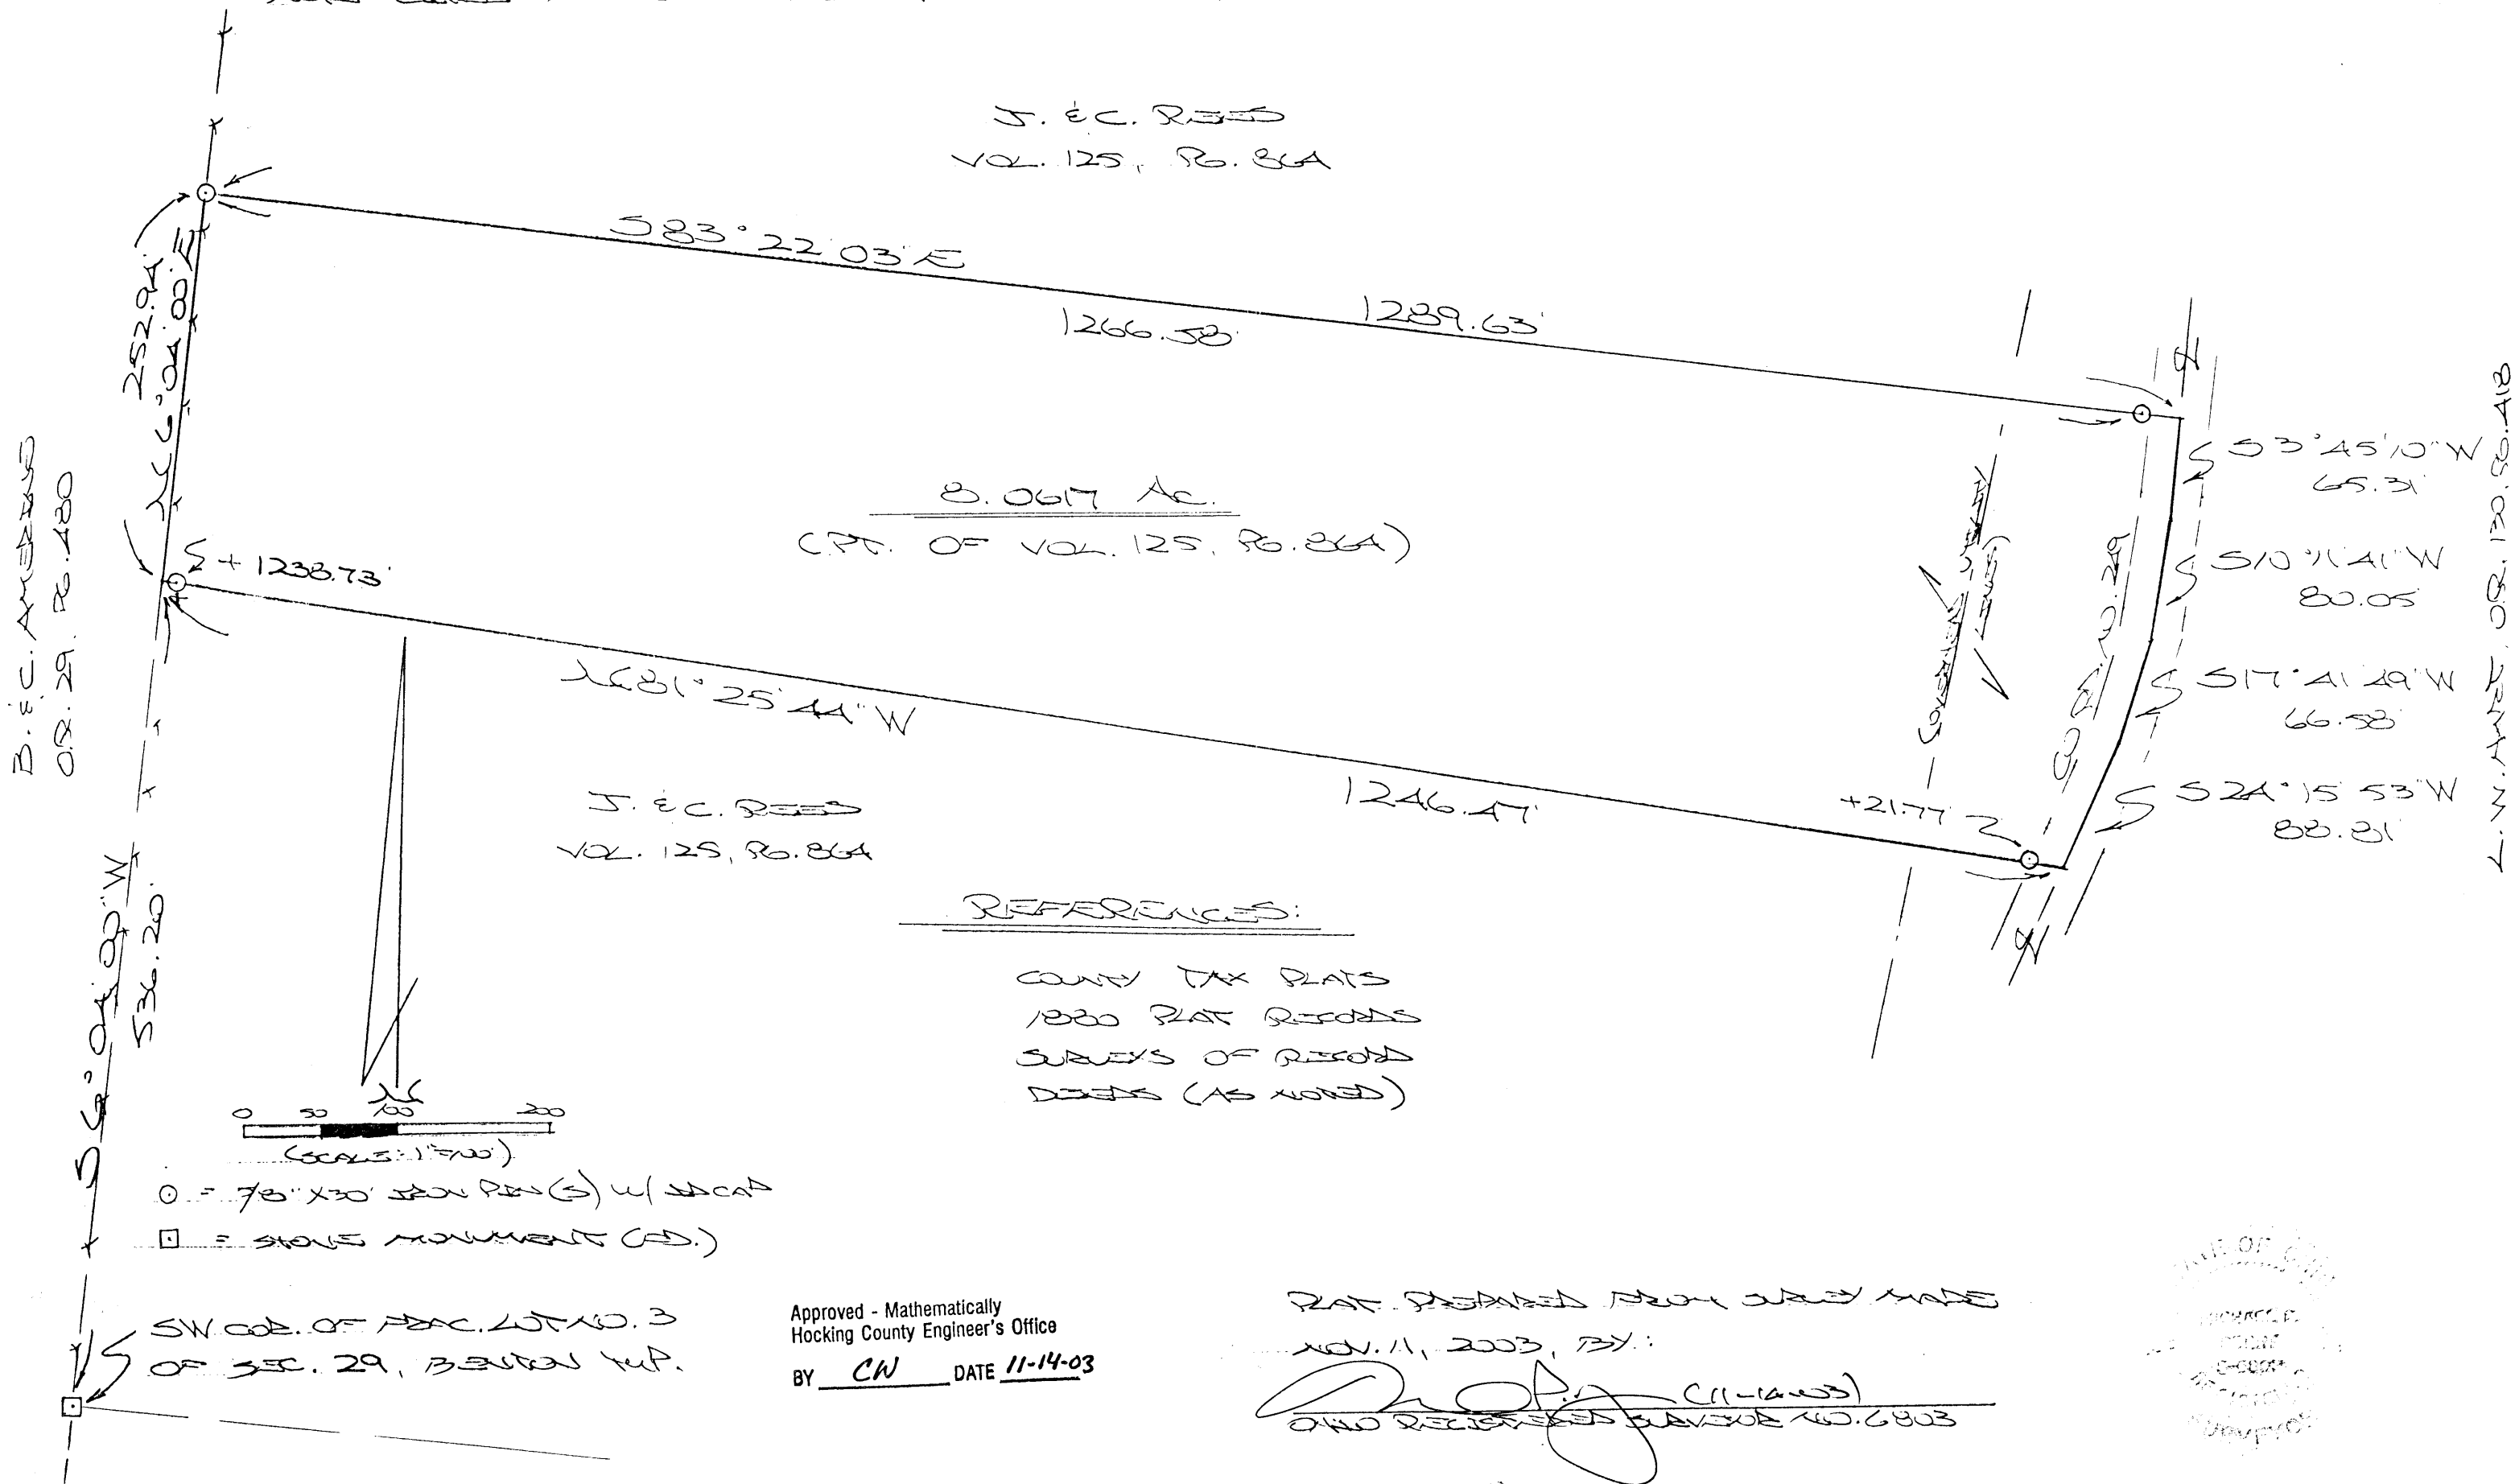 J. & C. REED
VOL. 125, PG. 864
S 83° 22' 03" E
1289.63'
1266.58'
252.94'
N 6° 04' 08" E
B. & C. AMERINE
O.R. 29, PG. 480
8.0617 AC.
(PT. OF VOL. 125, PG. 864)
+ 1238.73'
N 81° 25' 44" W
1246.47'
+21.77'
CO. RD. NO. 29
S 3° 45' 10" W
65.31'
S 10° 11' 41" W
80.05'
S 17° 41' 49" W
66.58'
S 24° 15' 53" W
88.81'
O.R. 130, PG. 418
J. & C. REED
VOL. 125, PG. 864
536.20'
REFERENCES:
COUNTY TAX PLATS
1880 PLAT RECORDS
SURVEYS OF RECORD
DEEDS (AS NOTED)
N
0 50 100 200
(SCALE: 1"=100')
= 7/8" X 30" IRON PIN(S) W/ ID CAP
= STONE MONUMENT (FD.)
SW COR. OF FRAC. LOT NO. 3
OF SEC. 29, BENTON TWP.
Approved - Mathematically
Hocking County Engineer's Office
BY CW DATE 11-14-03
PLAT PREPARED FROM SURVEY MADE
NOV. 11, 2003, BY:
(11-14-03)
OHIO REGISTERED SURVEYOR NO. 6803